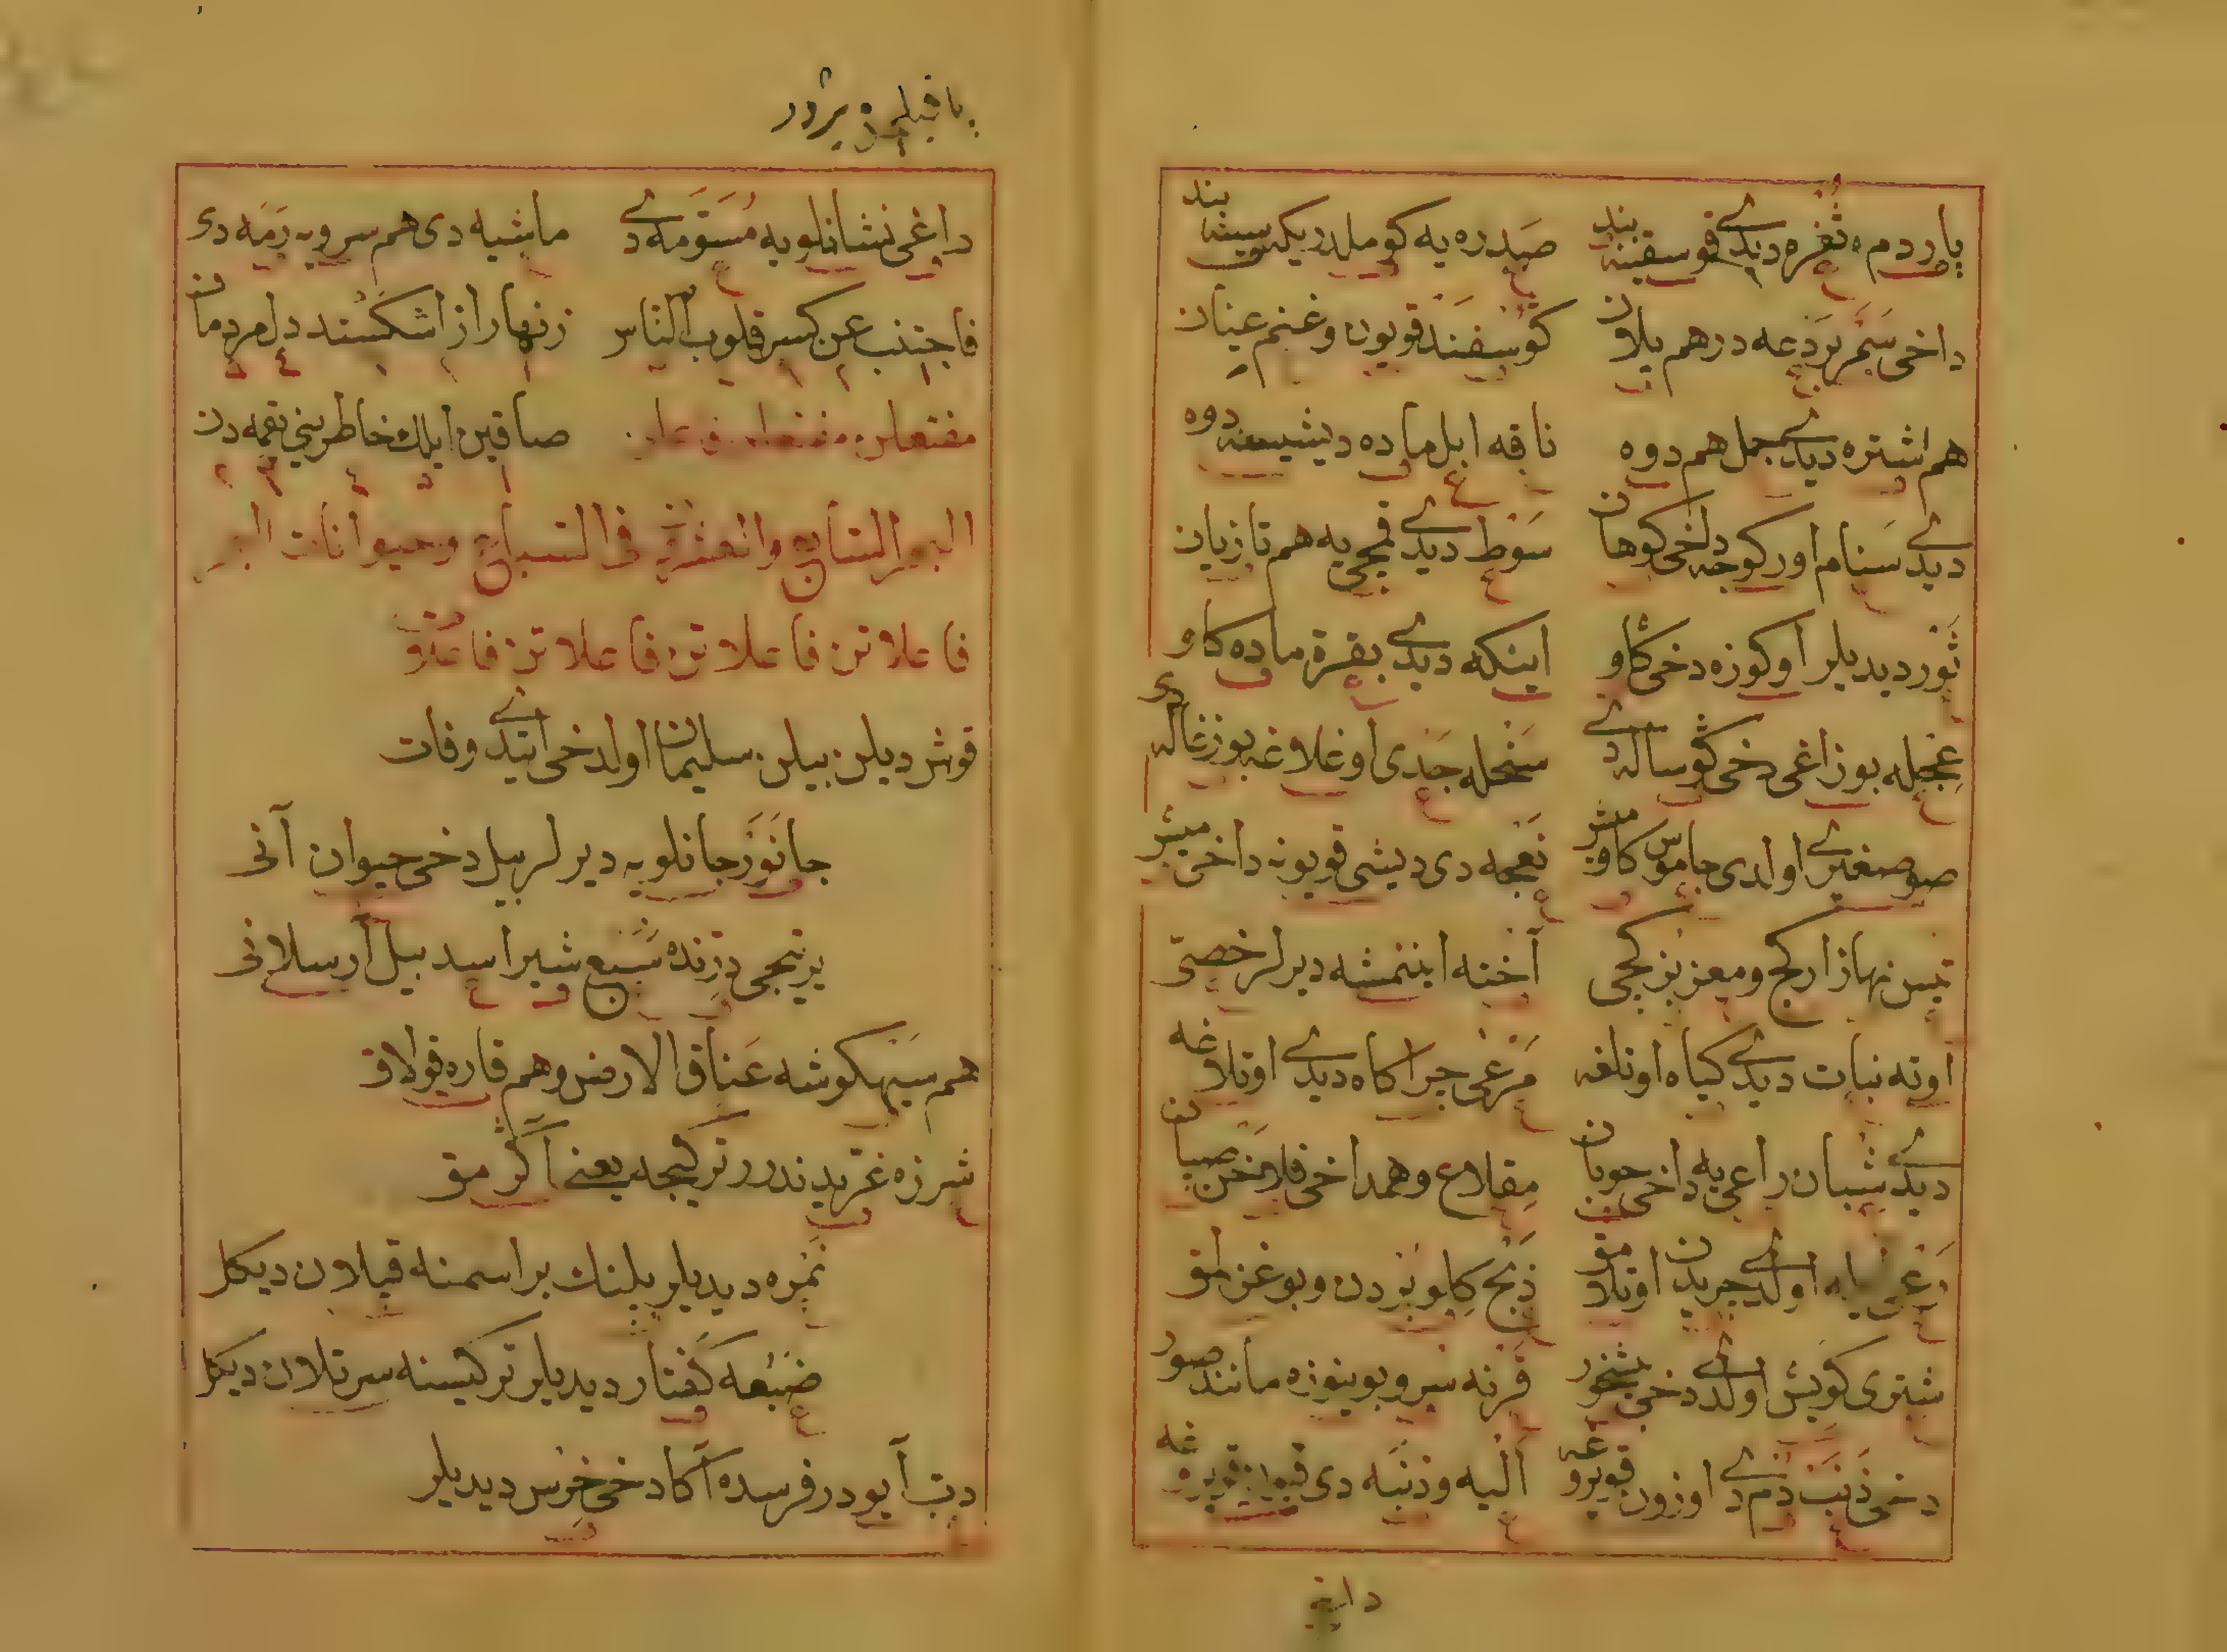 پاردم ثغره دیدے قوسقنه بند صدره یه کوملدریکه سینه بند
داخی سمر برذعه درهم پلان کوسفند قویون و غنم عینان
هم اشتره دیدے جمل هم دوه ناقه ابل ماده دیشیسنه دوه
دیدے سنام اورکوجه داخی کوهان سوط دیدے قمچی یه هم تازیان
ثور دیدیلر اوکوزه دخی کاو اینکه دیدے بقرة ماده کاو
عجله بوزاغی دخی کوساله دے سخله جدی اوغلاغه بوزغاله دی
صوصغیرے اولدی جاموس کاومیش نعجه دی دیشی قویونه داخی میش
تیس نهاز ارکج و معز بز کجی آخته ایننمشه دیرلر خصی
اوته نبات دیدے کیاه اوتلغه مرعی جراکاه دیدے اوتلاغه
دیدے شبان راعی یه داخی جوبان مقلاع و همداخی فلاخن صپان
اولدے جریدن اوتلامق ذبح کلو بزدن و بوغزلمق
شتری کویش اولدے دخی نشخور قرنه سرو بوینوزه مانند صور
دخی ذنب دم دے اوزون قویروغه الیه و دنبه دی
داغی
داغی نشانلویه مسومه دے ماشیه دی هم سرویه رمه دی
فاجتنب عن کسر قلوب الناس زنهار از اشکستند دل مردمان
مفتعلن مفتعلن فاعلن صاقین ایلك خاطرینی یقمه دن
البحر السابع والعشرے فی السباع وحیوانات البر
فاعلاتن فاعلاتن فاعلاتن
قوش دیلن بیلن سلیمان اولدخی ایتدے وفات
جانور جانلویه دیرلر بیل دخی حیوان آنی
یرتیجی درنده سبع شیر اسد بیل آرسلانی
هم سیهکوشه عناق الارض و هم قاره قولاق
شرزه غریدندر ترکیجه یعنے آکرمق
نمره دیدیلر پلنك براسمنه قپلان دیکل
ضبعه کفتار دیدیلر ترکیسنه سرتلان دیکل
دب آیودر فرسده آکا دخی خرس دیدیلر